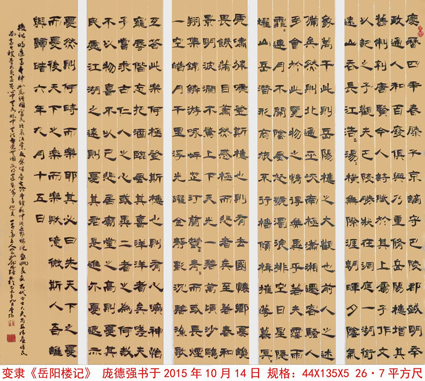 慶曆四年春滕子京謫守巴陵郡越明年
政通人和百廢俱興乃重修岳陽樓增其
舊制刻唐賢今人詩賦於其上屬予作文
以記之予觀夫巴陵勝狀在洞庭一湖銜
遠山吞長江浩浩湯湯橫無際涯朝暉夕陰氣
象萬千此則岳陽樓之大觀也前人之述
備矣然則北通巫峽南極瀟湘遷客騷人
多會於此覽物之情得無異乎若夫霪雨霏
霏連月不開陰風怒號濁浪排空日星隱
耀山岳潛形商旅不行檣傾楫摧薄暮冥
冥虎嘯猿啼登斯樓也則有去國懷鄉
憂讒畏譏滿目蕭然感極而悲者矣至若春和
景明波瀾不驚上下天光一碧萬頃沙鷗
翔集錦鱗游泳岸芷汀蘭郁郁青青而或長煙
一空皓月千里浮光躍金靜影沉璧漁歌
互答此樂何極登斯樓也則有心曠神怡
寵辱偕忘把酒臨風其喜洋洋者矣嗟夫
予嘗求古仁人之心或異二者之為何哉不
以物喜不以己悲居廟堂之高則憂其
民處江湖之遠則憂其君是進亦憂退亦
憂然則何時而樂耶其必曰先天下之憂
而憂後天下之樂而樂乎噫微斯人吾誰
與歸時六年九月十五日
变隶《岳阳楼记》 庞德强书于 2015 年 10 月 14 日 规格：44X135X5 26·7平方尺